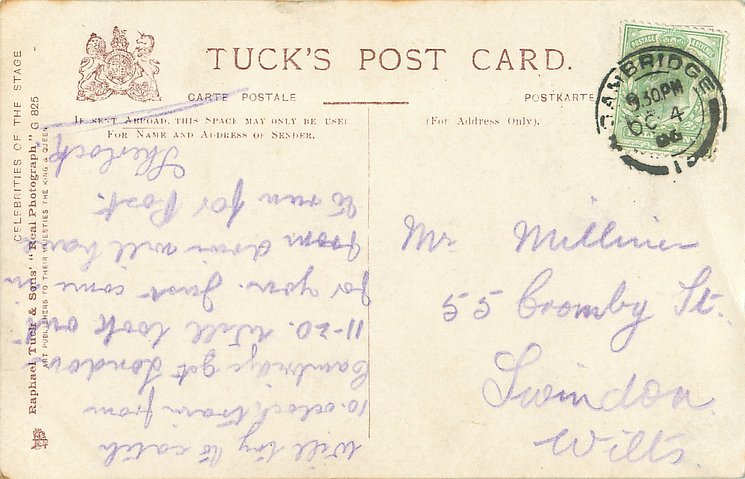 TUCK'S POST CARD.
CARTE POSTALE
POSTKARTE
IF SENT ABROAD, THIS SPACE MAY ONLY BE USED
FOR NAME AND ADDRESS OF SENDER.
(For Address Only).
CAMBRIDGE
9 30PM
OC 4
06
15
POSTAGE
Mr Milliner
55 Cromby St.
Swindon
Wilts.
Will try to catch
10.oclock train from
Cambridge get London
11-20. Will look out
for you. Just come in
from drive will have
to run for Post.
Sherlock
CELEBRITIES OF THE STAGE
Raphael Tuck & Sons' "Real Photograph." G 825
ART PUBLISHERS TO THEIR MAJESTIES THE KING & QUEEN